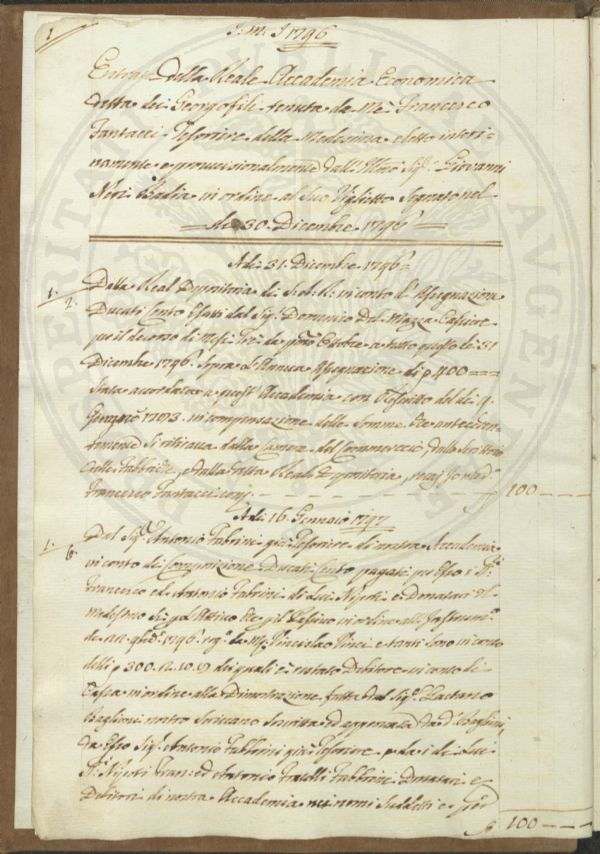 1
J. M. J 1796
Entrata della Reale Accademia Economica
detta dei Georgofili tenuta da Me Francesco
Fantacci Tesoriere della Medesima eletto interi=
namente e provvisionalmente dall' Illmo Sigr. Giovanni
Neri Badia in ordine al Suo Viglietto Segnato nel
dì 30. Dicembre 1796
A dì 31. Dicembre 1796
1. 2. Dalla Real Depositeria di S. A. R. in conto d'Assegnazione
Ducati Cento Esatti dal Sigr. Domenico Del Mazza Cassiere
per il decorso di Mesi Tre da pmo Ottobre a tutto questo dì 31
Dicembre 1796. Sopra l'Annua Assegnazione di 400
Stata accordata a quest' Accademia con Rescritto del dì 9.
1783. in compensazione delle Somme che anteceden=
temente Si ritirava dalla Camera del Commercio, dallo Scrittoio
delle Fabbriche, e dalla detta Reale Depositeria
Francesco Fantacci 100
A dì 16. Gennaio 1797
1. 6. Dal Sigr. Antonio Fabrini già Tesoriere di nostra Accademia
in conto di Ducati Cento pagati per Esso i SS.ri
Francesco ed Antonio Fabrini di Lui Nipoti e Donatari del
medesimo in ordine all'
de 1796. da Vinci e tanti Sono in conto
delli 300. 12. 10. 9 dei quali è restato Debitore in conto di
Cassa in ordine alla Dimostrazione fatta dal Sigr. Gaetano
Baglioni nostro Scrivano
da Esso Sigr. Antonio Fabbrini già Tesoriere
Nipoti Fran: ed Antonio Fratelli Fabbrini Donatari e
Debitori di nostra Accademia nei nomi Suddetti e
100
PROSPERITATI PUBLICAE AUGENDAE